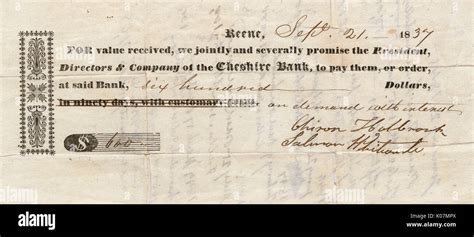 Keene, Sept. 21. 1837
FOR value received, we jointly and severally promise the President,
Directors & Company of the Cheshire Bank, to pay them, or order,
at said Bank, six hundred Dollars,
In ninety days, with customary grace. on demand with interest
Chiron Holbrook
$ 600 Salmon
alamy
Image ID: K07MPX
www.alamy.com